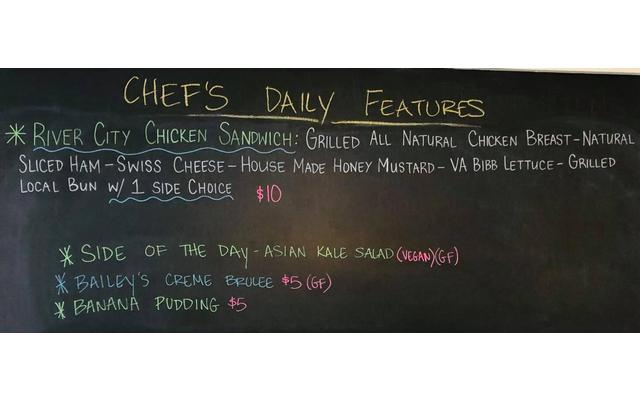 CHEF'S DAILY FEATURES
* RIVER CITY CHICKEN SANDWICH: GRILLED ALL NATURAL CHICKEN BREAST - NATURAL
SLICED HAM - SWISS CHEESE - HOUSE MADE HONEY MUSTARD - VA BIBB LETTUCE - GRILLED
LOCAL BUN W/ 1 SIDE CHOICE $10
* SIDE OF THE DAY - ASIAN KALE SALAD (VEGAN)(GF)
* BAILEY'S CREME BRULEE $5 (GF)
* BANANA PUDDING $5